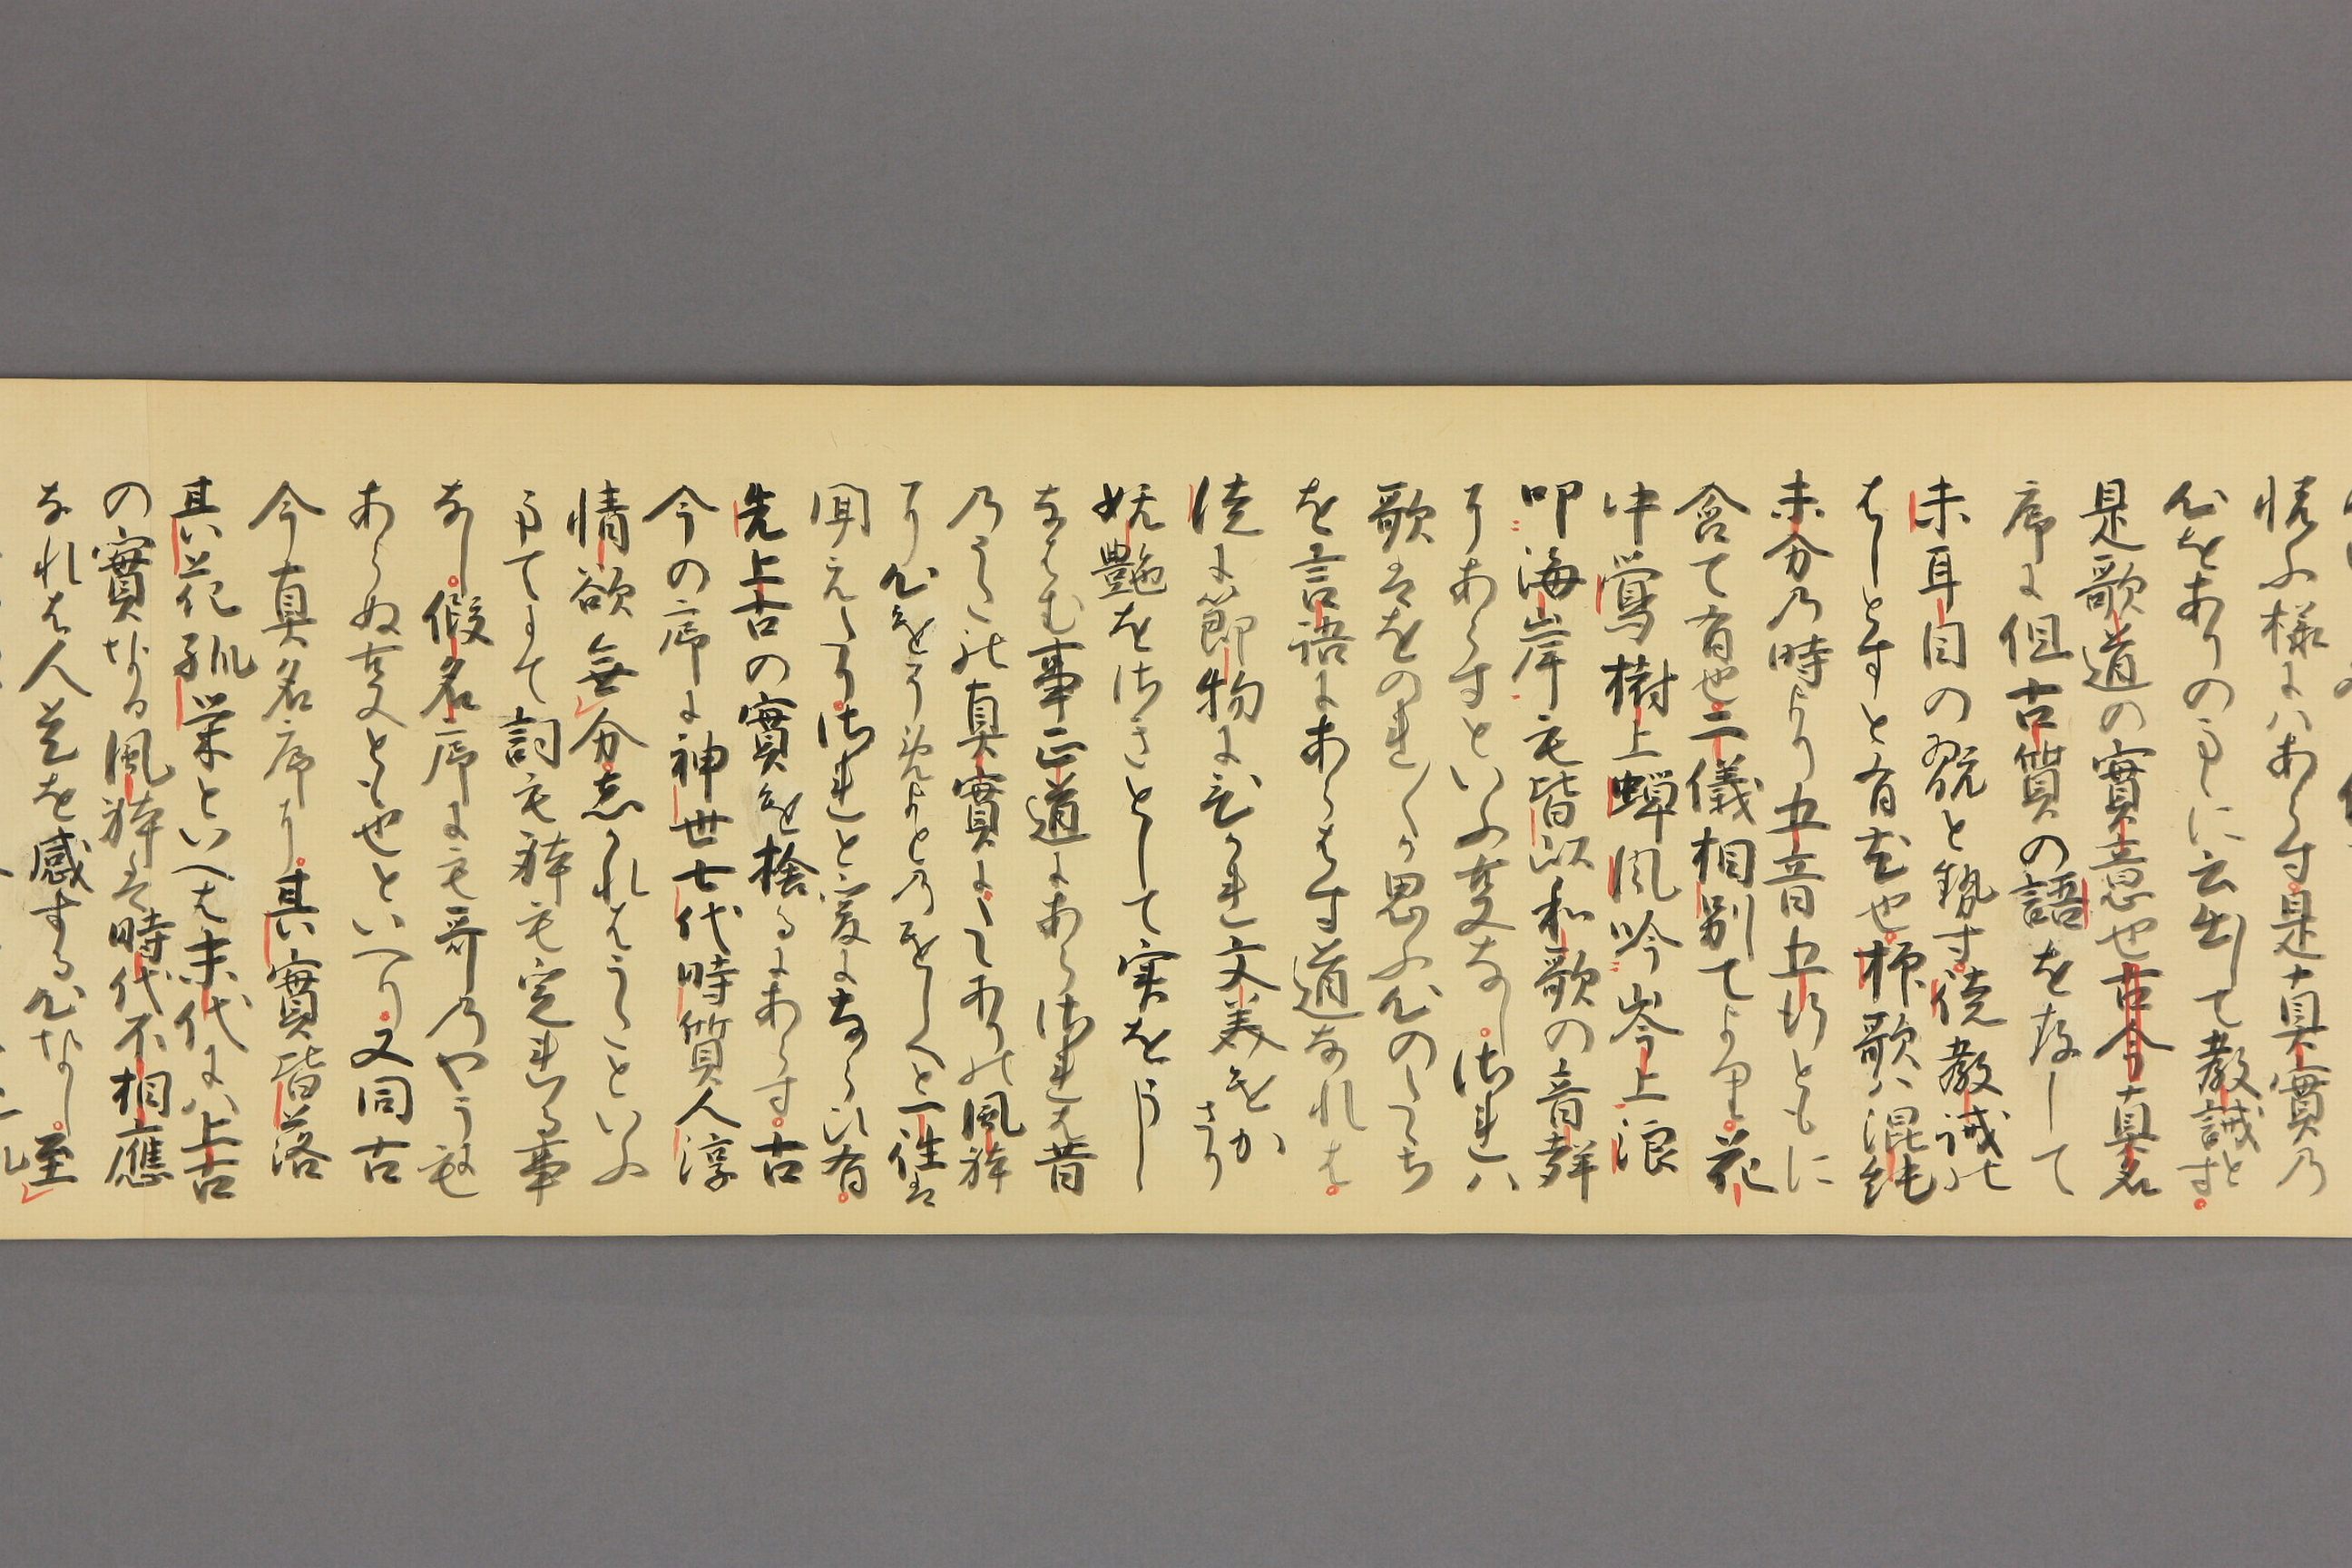 情ふ様にハあらす是真實乃
心をありのまゝに云出して教誡とす
是歌道の實意也古今真名
序に但古質の語を存して
未耳目の翫と執す徒教誡の
はしとすと有是也抑歌ハ混沌
未分乃時より五音五行ともに
含て有也二儀相別てより花
中鶯樹上蝉風吟岑上浪
叩海岸毛皆以和歌の音群
にあらすといふ事なし然れハ
歌はをのれ〳〵か思ふ心のうち
を言語にあらはす道なれは
徒に節物にひかれ文美をか
さり
妖艶をさきとして実をうし
なはむ事正道にあらされは昔
乃うたの真實にしてありの風躰
に心をうつせとのをしへと一往は
聞えたりされと爰にならひ有
先上古の實を捨るにあらす古
今の序に神世七代時質人淳
情欲無分志かれはうたといふ
ましてにて詞毛躰毛定れる事
なし假名序に毛哥乃やう毛
あらぬ事とも也といへり又同古
今真名序に其實皆落
其花孤栄といへは末代にハ上古
の實なる風躰は時代不相應
なれは人是を感する心なし至